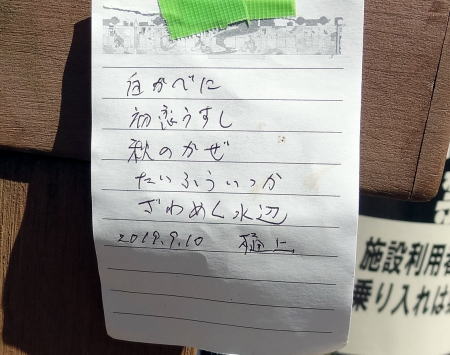 白かべに
初恋うすし
秋のかぜ
たいふういっか
ざわめく水辺
2019.9.10
施設利用者
乗り入れは